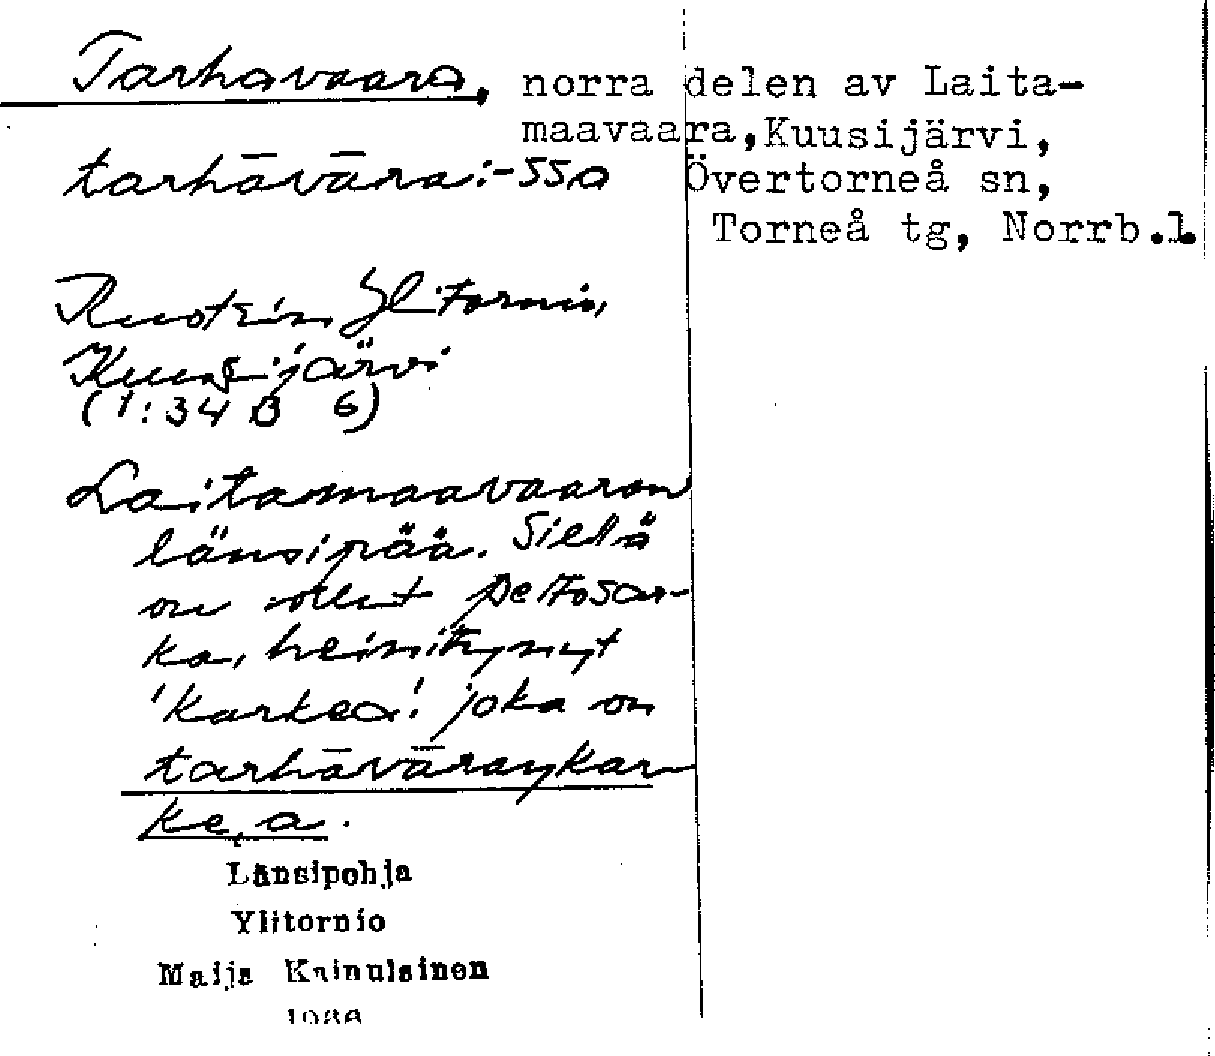 Tarhavaara, norra delen av Laita-
maavaara, Kuusijärvi,
tarhāvāra: -ssa Övertorneå sn,
Torneå tg, Norrb.l.
Ruotsin Ylitornio,
Kuusijärvi
(1:34 B 6)
Laitamaavaaran
länsipää. Sielä
on ollut peltosar-
ka, heinitynyt
'karkea', joka on
tarhāvāraŋkar-
kea.
Länsipohja
Ylitornio
Maija Kainulainen